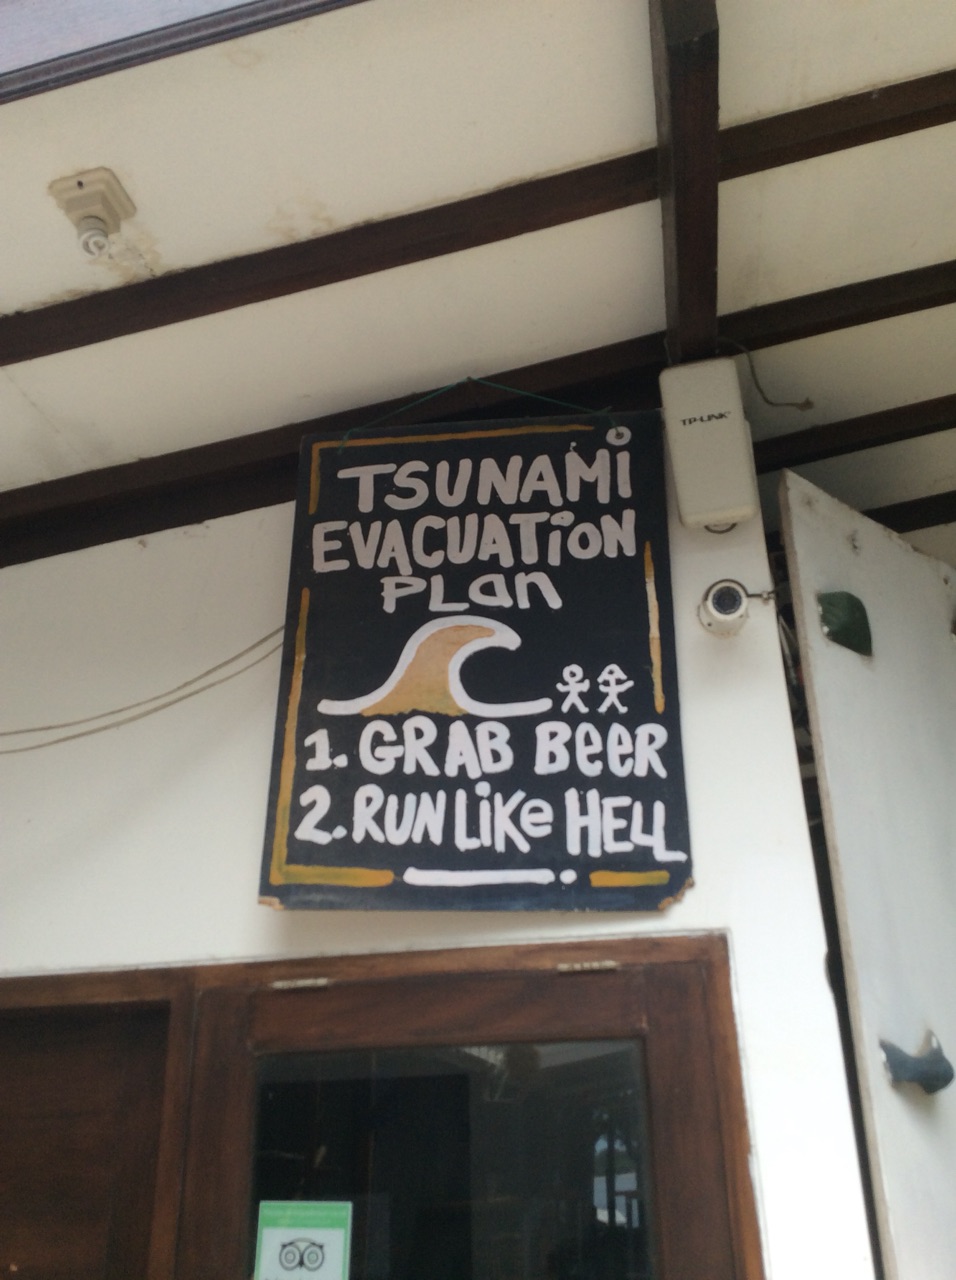 TP-LINK
TSUNAMi
EVACUATiON
PLan
1. GRAB BeeR
2. RUN LiKe HELL